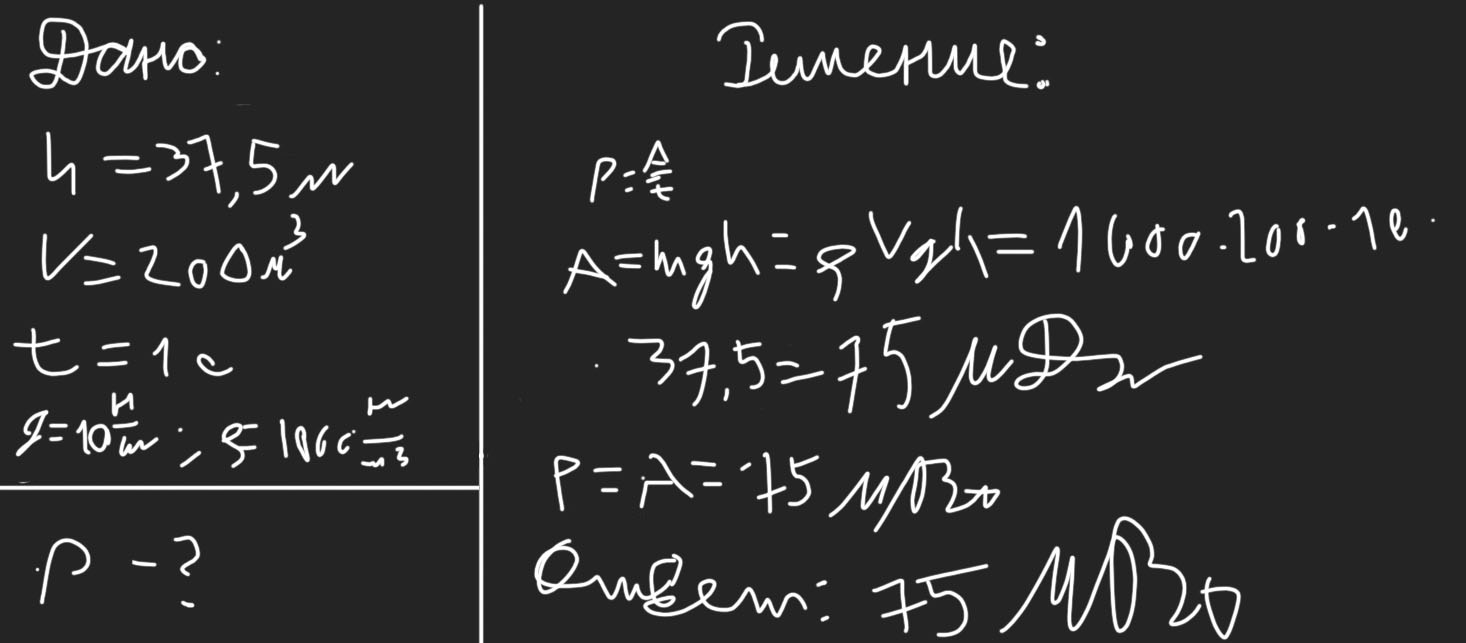 Дано:
h = 37,5 м
V = 200 м³
t = 1 с
g = 10 Н/кг ; ρ = 1000 кг/м³
P - ?
Решение:
P = A/t
A = mgh = ρVgh = 1000 · 200 · 10 ·
· 37,5 = 75 МДж
P = A = 75 МВт
Ответ: 75 МВт